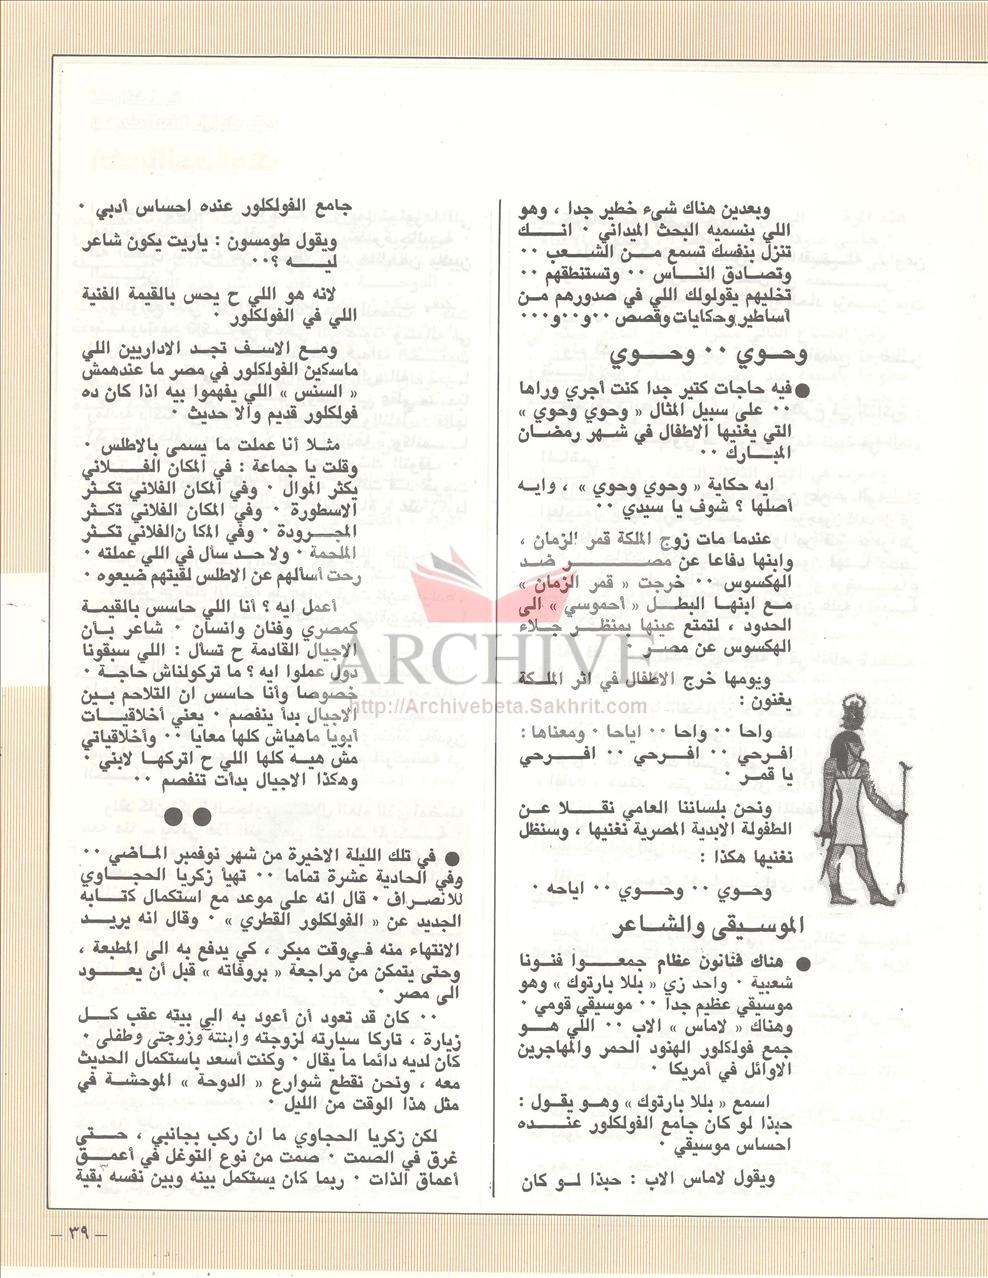 وبعدين هناك شيء خطير جدا ، وهو
اللي بنسميه البحث الميداني ٠ انــك
تنزل بنفسك تسمع مــن الشـعب ٠٠
وتصادق النـاس ٠٠ وتستنطقهم ٠٠
تخليهم يقولولك اللي في صدورهم مـن
أساطير وحكايات وقصص ٠٠و٠٠و٠٠٠
وحـوي ٠٠ وحــوي
● فيه حاجات كتير جدا كنت أجري وراها
٠٠ على سبيل المثال « وحوي وحوي »
التي يغنيها الاطفال في شهر رمضـان
المبـارك ٠٠
ايه حكاية « وحوي وحوي » ، وايـه
أصلها ؟ شوف يا سيدي ٠٠
عندما مات زوج الملكة قمر الزمان ،
وابنها دفاعا عن مصـــر ضـد
الهكسوس ٠٠ خرجت « قمر الزمان »
مـع ابنهـا البطـل « أحموسي » الى
الحدود ، لتمتع عينها بمنظـر جـلاء
الهكسوس عن مصـر ٠
ويومها خرج الاطفال في اثر الملـكة
يغنون :
واحا ٠٠ واحا ٠٠ اياحا ٠ ومعناها :
افـرحي ٠٠ افـرحي ٠٠ افـرحي
يا قمـر ٠
ونحن بلساننا العامي نقــلا عـن
الطفولة الابدية المصرية نغنيها ، وسنظل
نغنيها هكذا :
وحـوي ٠٠ وحـوي ٠٠ اياحه ٠
الموسـيقى والشـاعر
● هناك فنانون عظام جمعـوا فنـونا
شعبية ٠ واحد زي « بللا بارتوك » وهو
موسيقي عظيم جدا ٠٠ موسيقي قومي ٠
وهناك « لاماس » الاب ٠٠ اللي هـو
جمع فولكلور الهنود الحمر والمهاجرين
الاوائل في أمريكا ٠
اسمع « بللا بارتوك » وهـو يقـول :
حبذا لو كان جامع الفولكلور عنــده
احساس موسيقي ٠
ويقول لاماس الاب : حبذا لـو كان
جامع الفولكلور عنده احساس أدبي ٠
ويقول طومسون : ياريت يكون شاعر
ليـه ؟٠٠
لانه هو اللي ح يحس بالقيمة الفنية
اللي في الفولكلور ٠
ومـع الاسـف تجـد الاداريين اللي
ماسكين الفولكلور في مصر ما عندهمش
« السنس » اللي يفهموا بيه اذا كان ده
فولكلور قديم والا حديث ٠
مثـلا أنا عملت ما يسمى بالاطلس ٠
وقلت يا جماعة : في المكان الفــلاني
يكثر الموال ٠ وفي المكان الفلاني تكـثر
الاسطورة ٠ وفي المكان الفلاني تكـثر
المجـرودة ٠ وفي المكا نالفلاني تكـثر
الملحمة ٠ ولا حـد سأل في اللي عملته ٠
رحت أسألهم عن الاطلس لقيتهم ضيعوه ٠
أعمل ايه ؟ أنا اللي حاسس بالقيمـة
كمصري وفنان وانسان ٠ شاعر بـأن
الاجيال القادمة ح تسأل : اللي سبقونا
دول عملوا ايه ؟ ما تركولناش حاجـة ٠
خصوصا وأنا حاسس ان التلاحم بـين
الاجيال بدأ ينفصم ٠ يعني أخلاقيـات
أبويا ماهياش كلها معايا ٠٠ وأخلاقياتي
مش هيـه كلها اللي ح اتركهـا لابني ٠
وهكذا الاجيال بدأت تنفصم ٠٠
● ●
● في تلك الليلة الاخيرة من شهر نوفمبر المـاضي ٠٠
وفي الحادية عشرة تماما ٠٠ تهيأ زكريا الحجــاوي
للانصراف ٠ قال انه على موعد مع استكمال كتـابه
الجديد عن « الفولكلور القطري » ٠ وقال انه يريـد
الانتهاء منه في وقت مبكر ، كي يدفع به الى المطبعة ،
وحتى يتمكن من مراجعة « بروفاته » قبل أن يعــود
الى مصر ٠
٠٠ كان قد تعود أن أعود به الى بيته عقب كــل
زيارة ، تاركا سيارته لزوجته وابنته وزوجتي وطفلى ٠
كان لديه دائما ما يقال ٠ وكنت أسعد باستكمال الحديث
معه ، ونحن نقطع شوارع « الدوحة » الموحشـة في
مثل هذا الوقت من الليل ٠
لكن زكريا الحجاوي ما ان ركب بجانبي ، حــتى
غرق في الصمت ٠ صمت من نوع التوغل في أعمـق
أعماق الذات ٠ ربما كان يستكمل بينه وبين نفسه بقية
– ٣٩ –
ARCHIVE
http://Archivebeta.Sakhrit.com